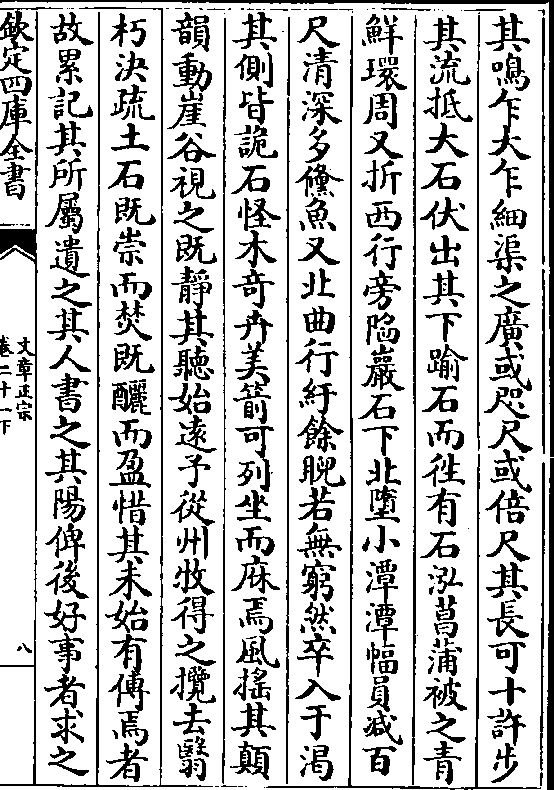 其鳴乍大乍細渠之廣或咫尺或倍尺其長可十許步
其流抵大石伏出其下踰石而徃有石泓菖蒲被之青
鮮環周又折西行旁陷巖石下北墮小潭潭幅員减百
尺清深多鯈魚又北曲行紆餘睨若無窮然卒入于渴
其側皆詭石怪木奇卉美箭可列坐而庥焉風搖其顛
韻動崖谷視之既靜其聽始遠予從州牧得之攬去翳
朽決疏土石既崇而焚既釃而盈惜其未始有傳焉者
故累記其所屬遺之其人書之其陽俾後好事者求之
欽定四庫全書
文章正宗
卷二十一下
八